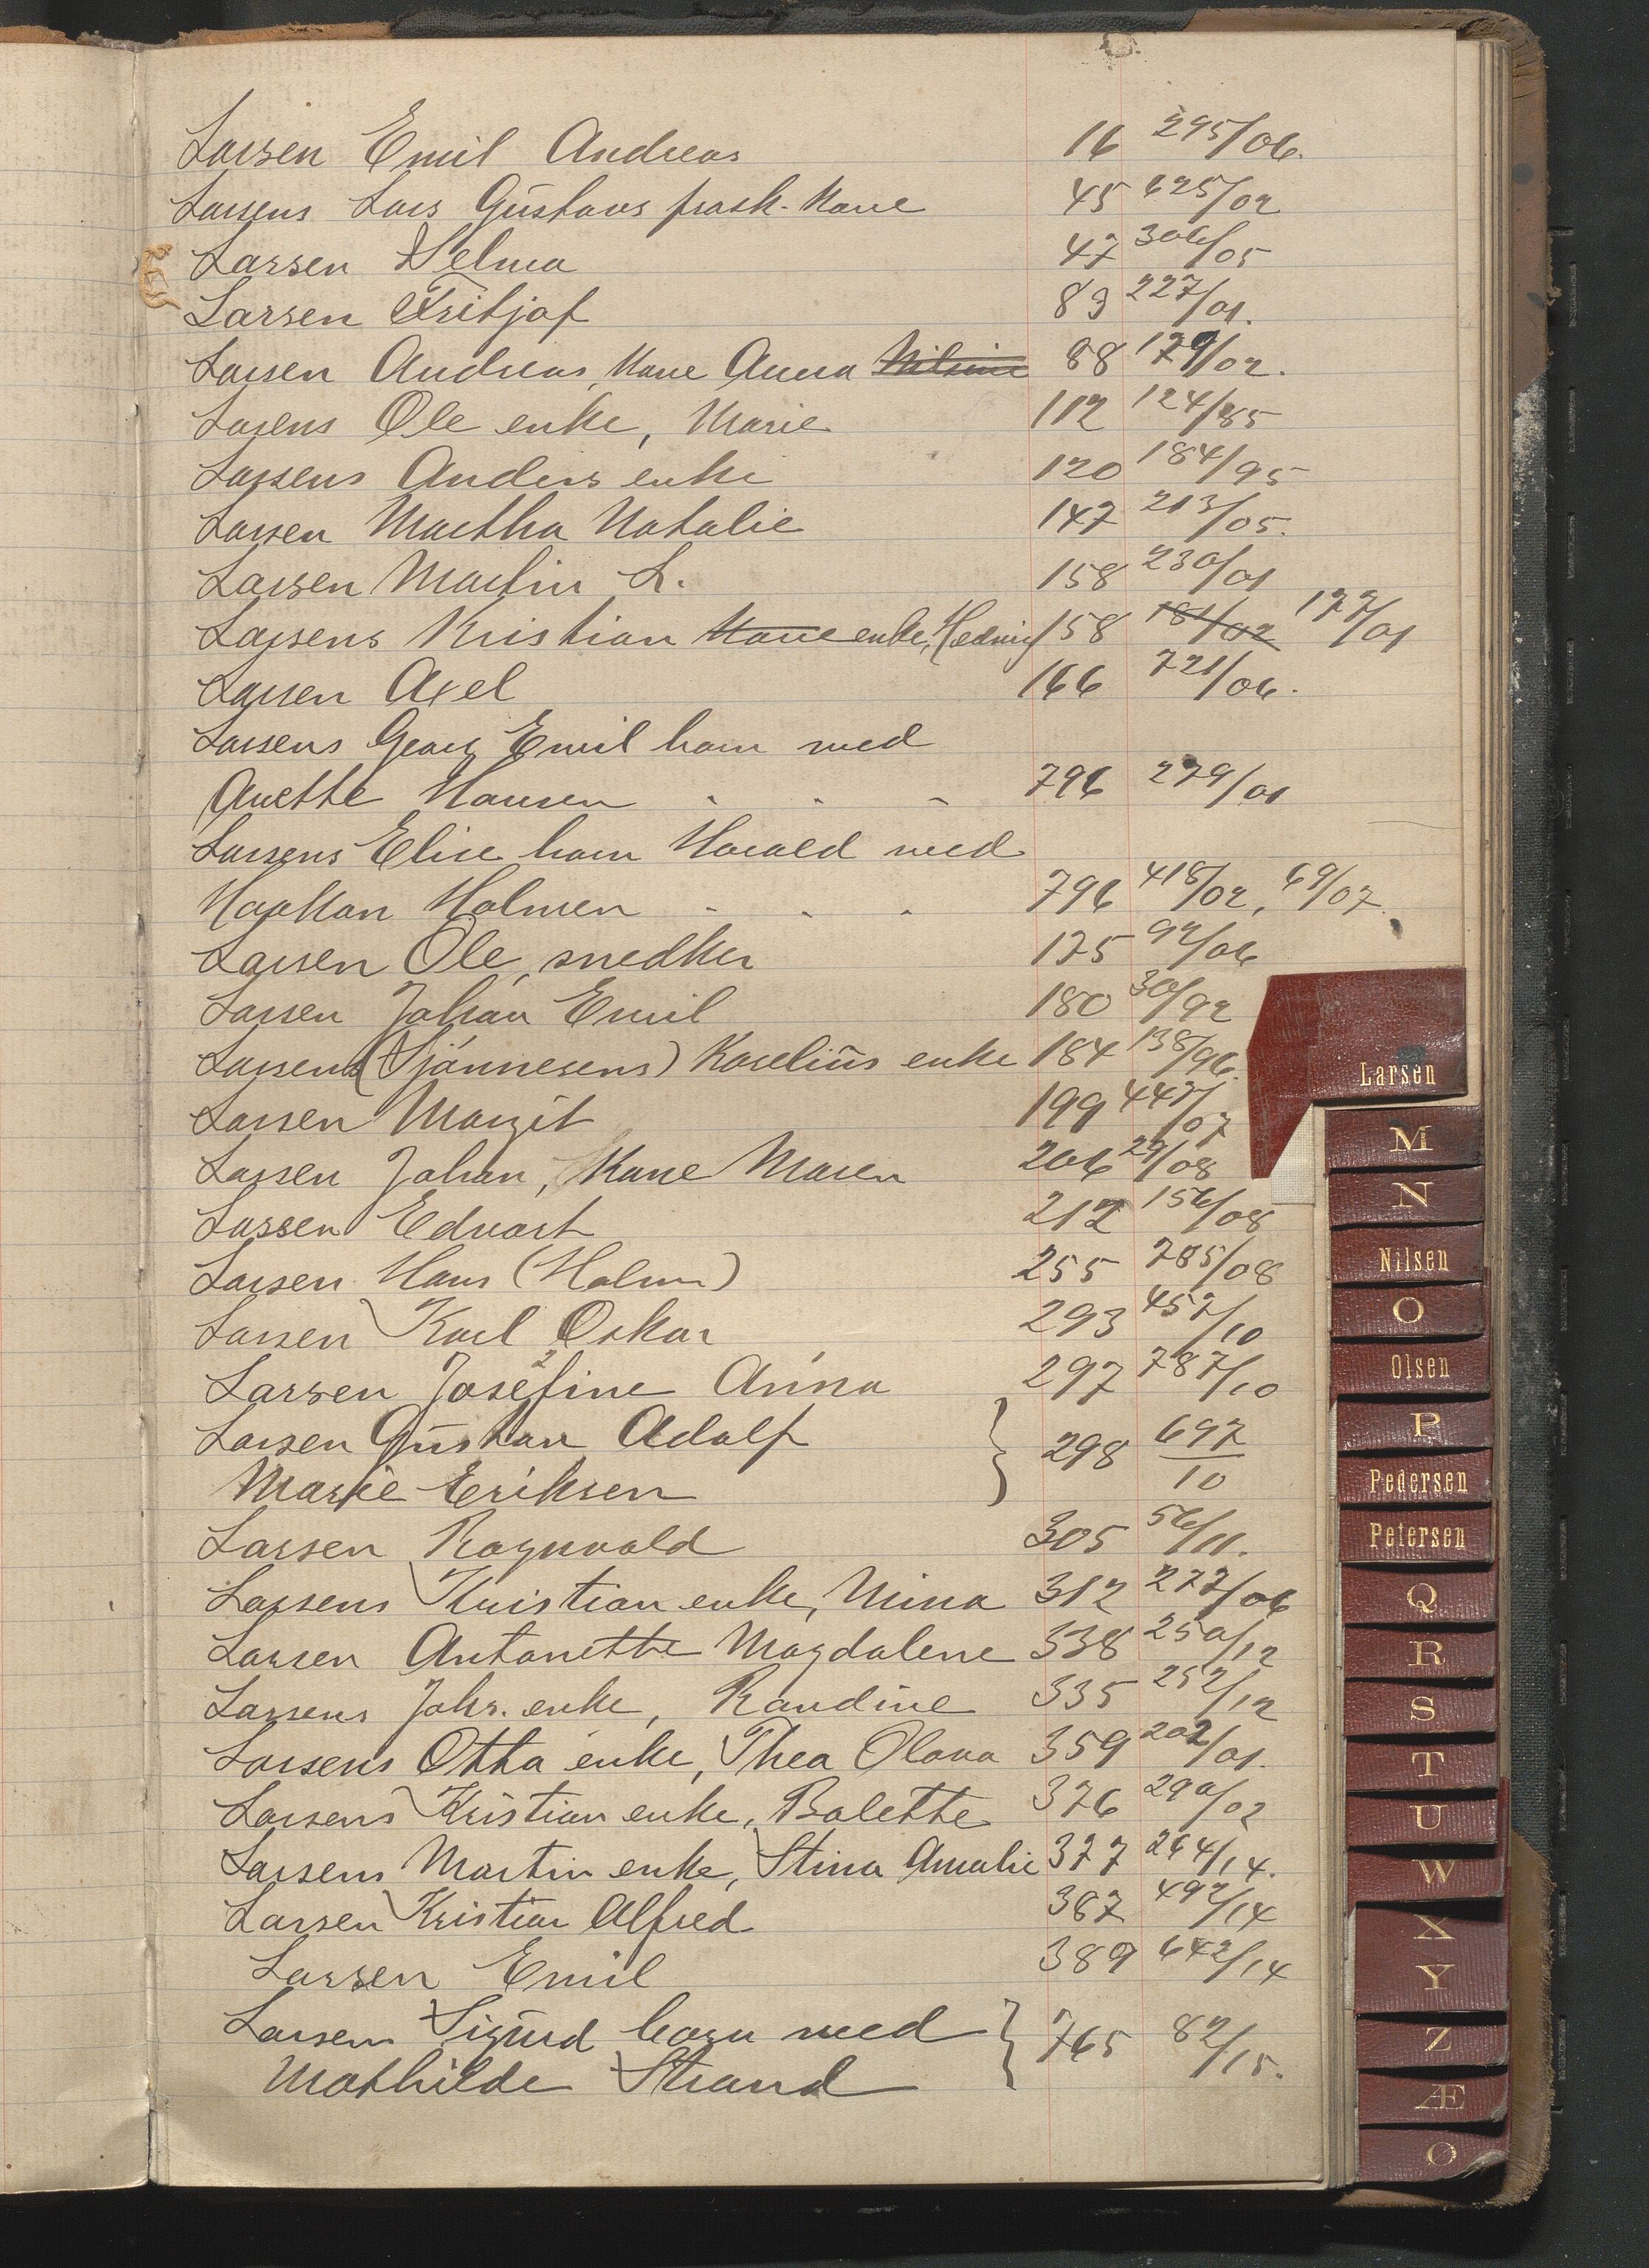 Larsen Emil Andreas 16 295/06.
Larsens Lars Gustavs frask. Kone 45 625/02
Larsen Selma 47 306/05
Larsen Fritjof 83 227/01.
Larsen Andreas, Kone Anna Nilsine 88 179/02.
Larsens Ole enke, Marie 112 124/85
Larsens Anders enke 120 184/95
Larsen Martha Natalie 147 213/05.
Larsen Martin L. 158 230/01
Larsens Kristian Kone enke, Hedvig 158 181/02 177/01
Larsen Axel 166 721/06.
Larsens Georg Emil barn med
Anette Hansen - - - 796 279/01
Larsens Elise barn Harald med
Haakon Holmen - - - 796 418/02, 69/07.
Larsen Ole, snedker 175 92/06
Larsen Johan Emil 180 30/92
Larsens (Sjännesens) Karelius enke 184 138/96.
Larsen Margit 199 447/07
Larsen Johan, Kone Maren 206 29/08
Larsen Edvart 212 156/08
Larsen Hans (Holm) 255 785/08
Larsen Karl Oskar 293 457/10
Larsen Josefine Anna 297 787/10
Larsen Gustav Adolf } 298 697/10
Marie Eriksen
Larsen Ragnvald 305 56/11.
Larsens Kristian enke, Nina 312 277/06
Larsen Antonette Magdalene 338 250/12
Larsens Johs. enke, Randine 335 252/12
Larsens Otto enke, Thea Olava 359 202/01.
Larsens Kristian enke, Bolette 376 290/02
Larsens Martin enke, Stina Amalie 377 264/14.
Larsen Kristian Alfred 387 492/14
Larsen Emil 389 642/14
Larsen Sigurd barn med } 765 82/15.
Mathilde Strand
Larsen
M
N
Nilsen
O
Olsen
P
Pedersen
Petersen
Q
R
S
T
U
W
X
Y
Z
Æ
O